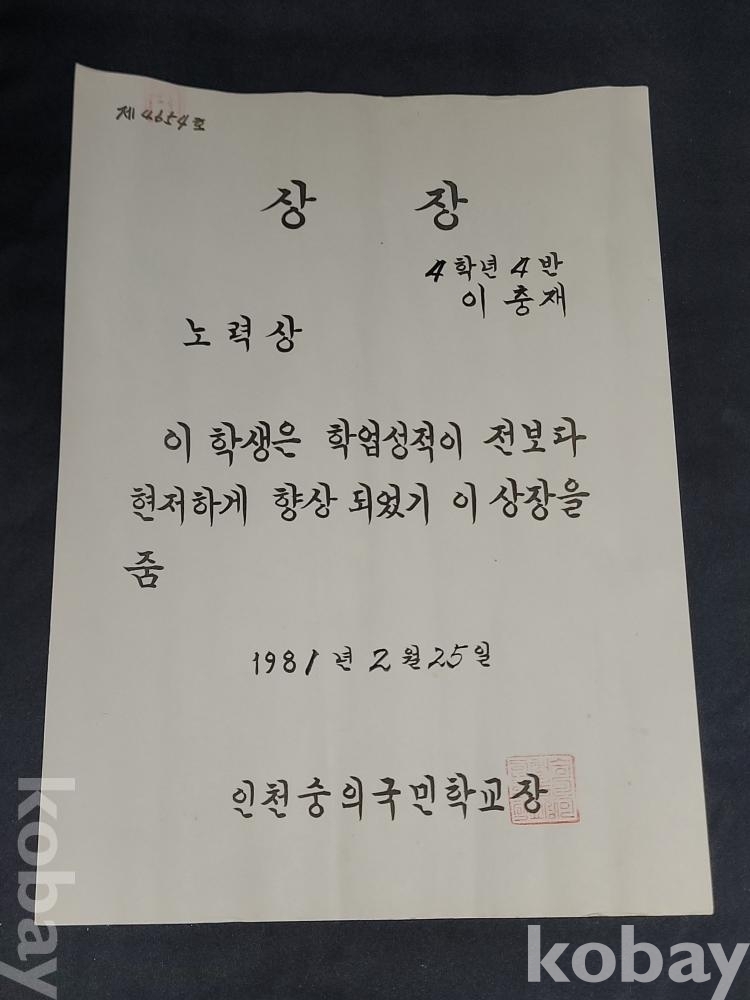 제 4654 호
상 장
4 학년 4 반
이 충 재
노 력 상
이 학생은 학업성적이 전보다
현저하게 향상 되었기 이 상장을
줌
1981 년 2 월 25 일
인천숭의국민학교장
kobay
kobay